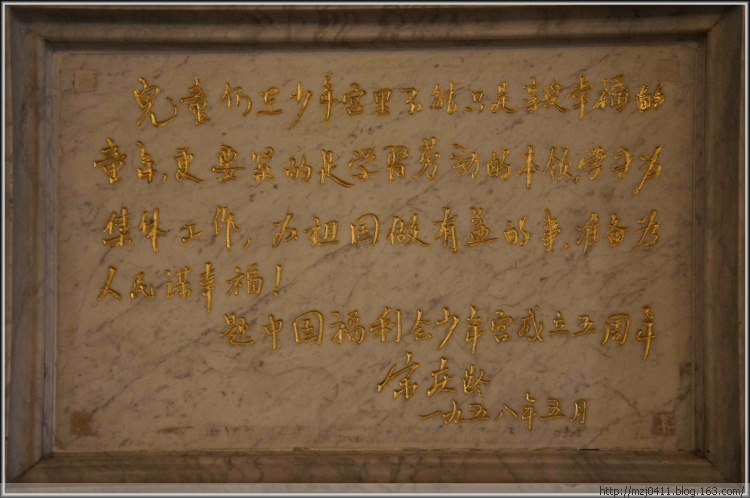 兒童们在少年宫里不能只是享受幸福的
童年,更要紧的是学習劳动的本领,学习为
集体工作,为祖国做有益的事,准备为
人民谋幸福!
题中国福利会少年宫成立五周年
宋庆龄
一九五八年五月
http://mzj0411.blog.163.com/